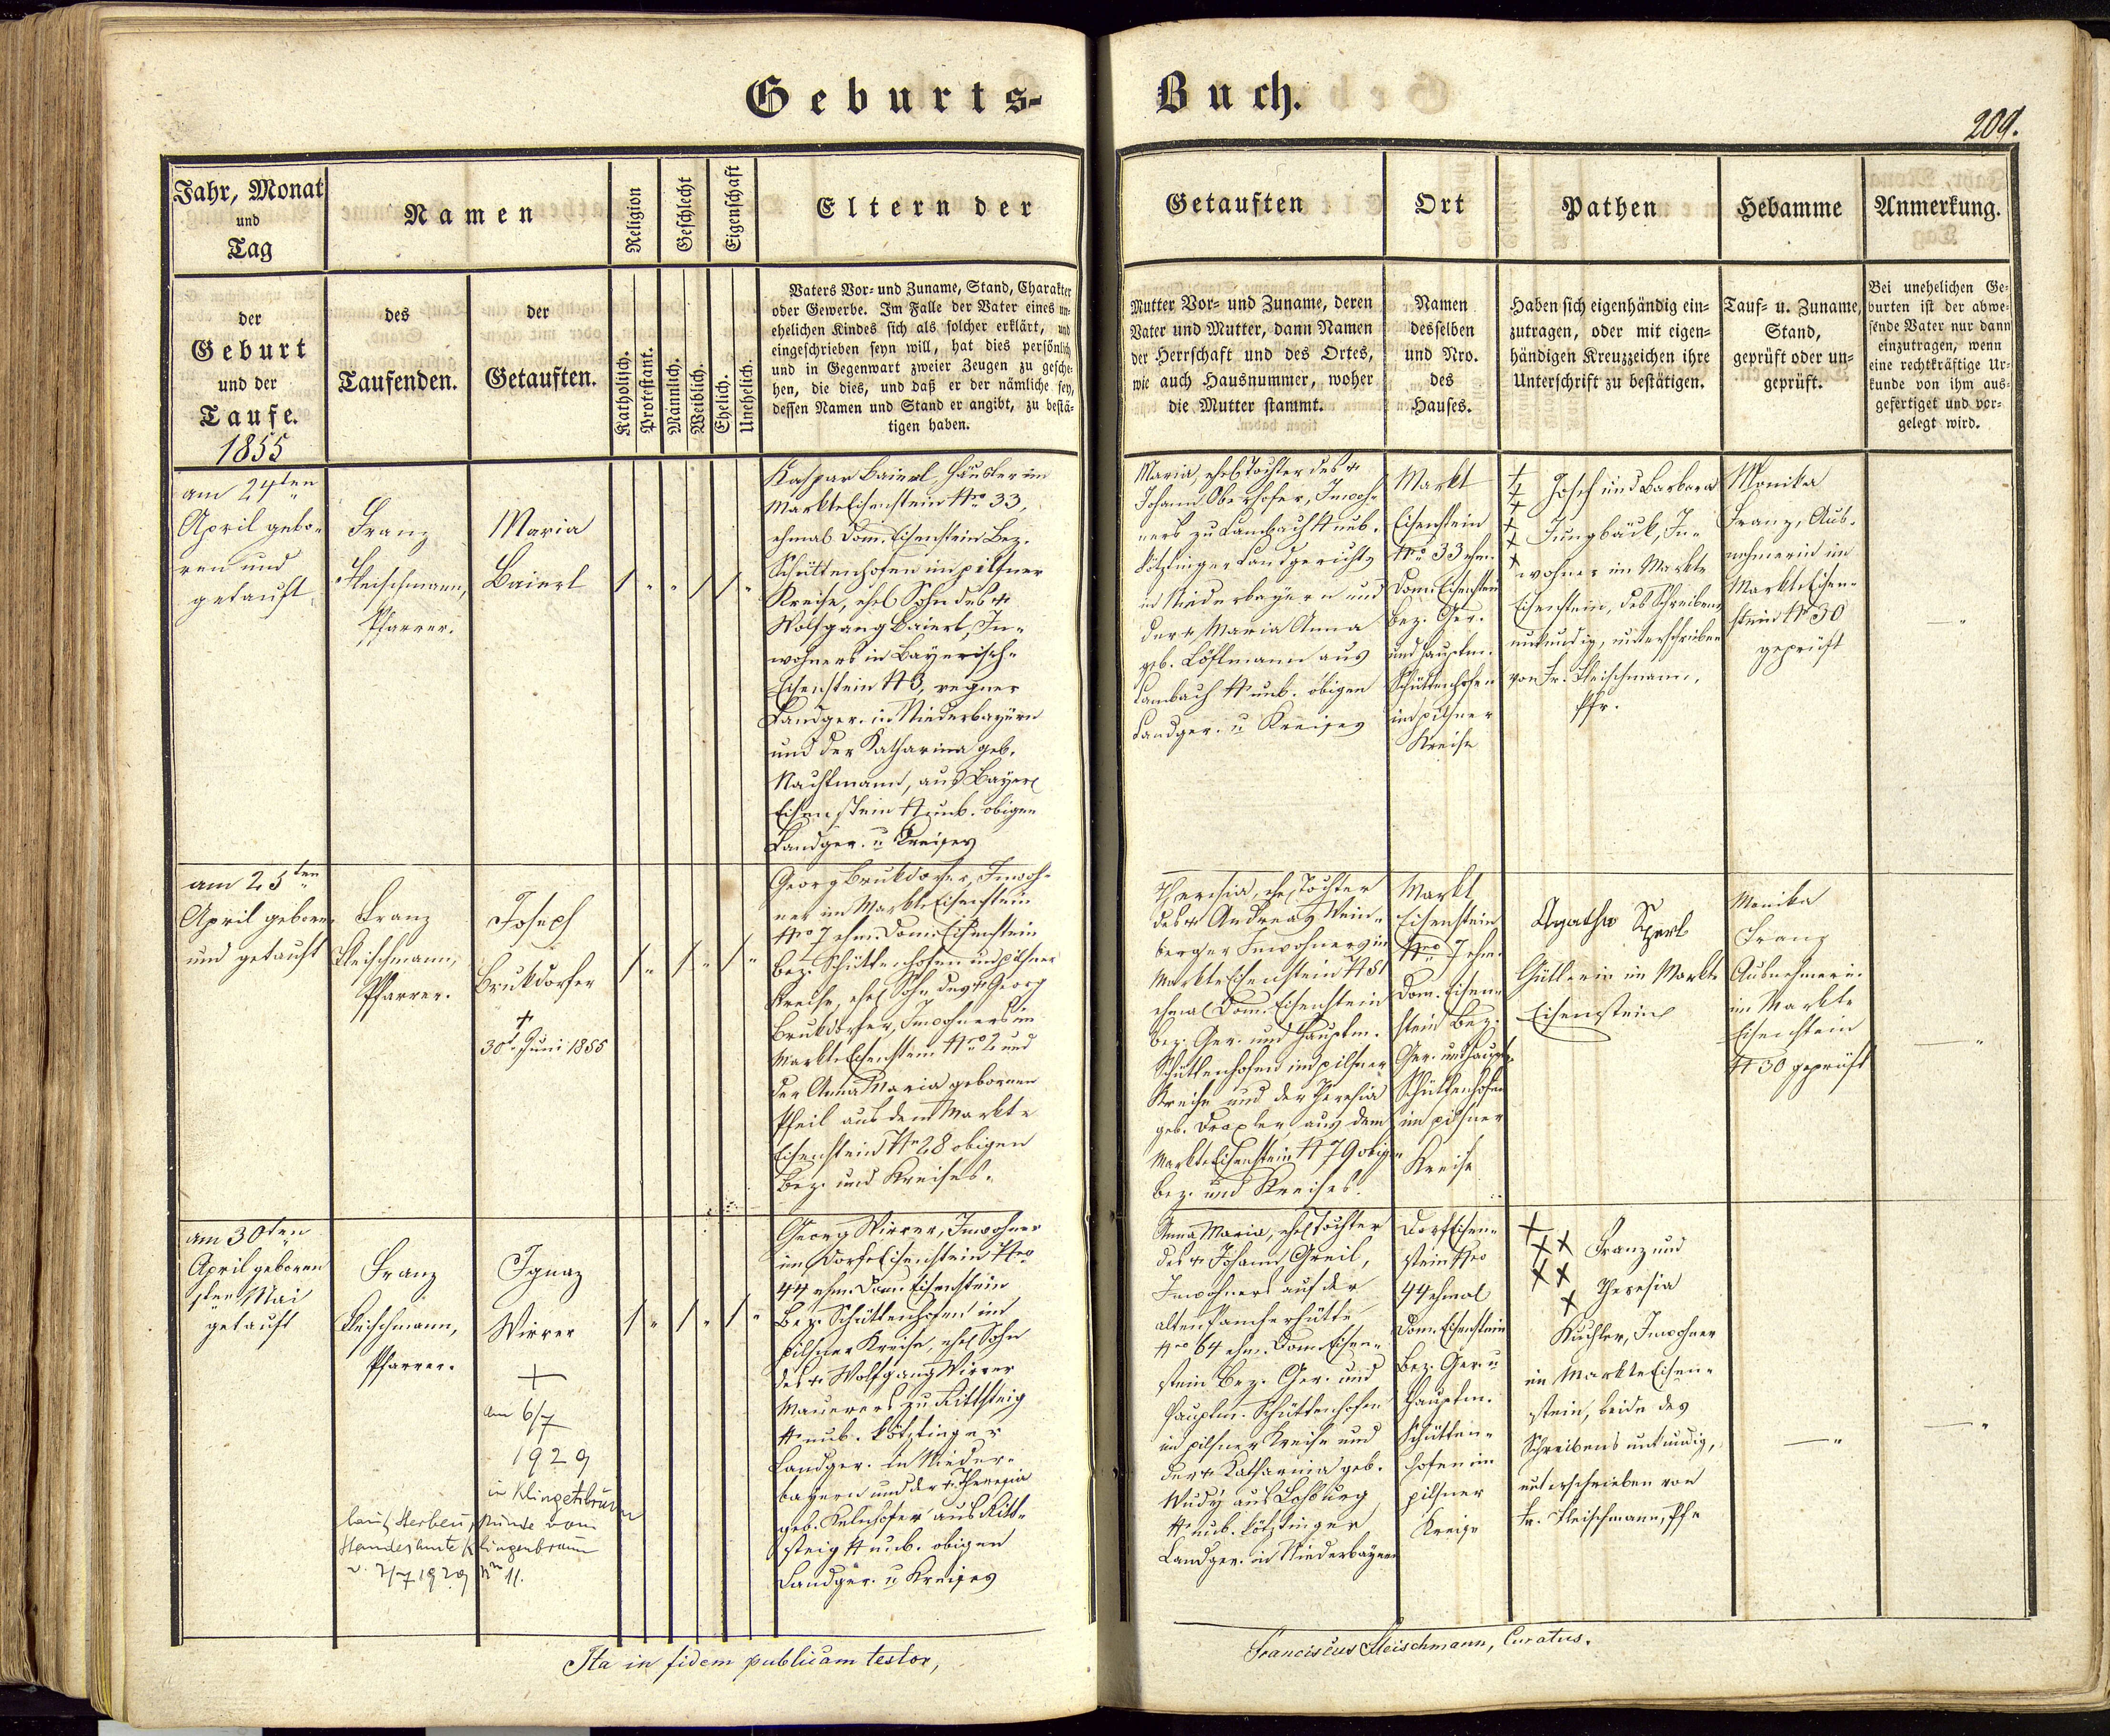 Geburts-
Buch.
209.
Jahr, Monat
und
Tag
der
Geburt
und der
Taufe.
1855
Namen
des
Taufenden.
der
Getauften.
Religion
Katholisch.
Protestant.
Geschlecht
Männlich.
Weiblich.
Eigenschaft
Ehelich.
Unehelich.
Eltern der
Vaters Vor- und Zuname, Stand, Charakter
oder Gewerbe. Im Falle der Vater eines un-
ehelichen Kindes sich als solcher erklärt, und
eingeschrieben seyn will, hat dies persönlich
und in Gegenwart zweier Zeugen zu gesche-
hen, die dies, und daß er der nämliche sey,
dessen Namen und Stand er angibt, zu bestä-
tigen haben.
Getauften
Mutter Vor- und Zuname, deren
Vater und Mutter, dann Namen
der Herrschaft und des Ortes,
wie auch Hausnummer, woher
die Mutter stammt.
Ort
Namen
desselben
und Nro.
des
Hauses.
Pathen
Haben sich eigenhändig ein-
zutragen, oder mit eigen-
händigen Kreuzzeichen ihre
Unterschrift zu bestätigen.
Hebamme
Tauf- u. Zuname,
Stand,
geprüft oder un-
geprüft.
Anmerkung.
Bei unehelichen Ge-
burten ist der abwe-
sende Vater nur dann
einzutragen, wenn
eine rechtkräftige Ur-
kunde von ihm aus-
gefertiget und vor-
gelegt wird.
am 24ten
April gebo-
ren und
getauft
Franz
Fleischmann,
Pfarrer.
Maria
Baierl
Kaspar Baierl, Häusler im
Markte Eisenstein Nro 33,
ehmals Dom. Eisenstein Bez.
Schüttenhofen im pilsner
Kreise, ehel Sohn des +
Wolfgang Baierl, In-
wohners in Bayerisch-
Eisenstein N 3, regner
Landger. in Niederbayern
und der Katharina geb.
Nachtmann, aus Bayer
Eisenstein N unb. obigen
Landger. u Kreises
Maria, ehel Tochter des +
Johann Oberhofer, Inwoh-
ners zu Lambach N unb.
Kötztinger Landgerichts
in Niederbayern und
der + Maria Anna
geb. Löfflmann aus
Lambach N unb. obigen
Landger. u Kreises
Markt
Eisenstein
Nro 33 ehm.
Dom. Eisenstein
Bez. Ger.
und Hauptm.
Schüttenhofen
im pilsner
Kreise
Josef und Barbara
Jungbäck, In-
wohner im Markte
Eisenstein, des Schreibens
unkundig, unterschrieben
von Fr. Fleischmann,
Pfr.
Monika
Franz, Aus-
nehmerin im
Markte Eisen-
stein N 30
geprüft
am 25ten
April geboren
und getauft
Franz
Fleischmann,
Pfarrer.
Joseph
Brukdorfer
+
30t. Juni 1855
Georg Brukdorfer, Inwoh-
ner im Markte Eisenstein
Nro 7 ehm. Dom. Eisenstein
Bez. Schüttenhofen im pilsner
Kreise, ehel Sohn des + Georg
Brukdorfer, Inwohners im
Markte Eisenstein Nro 2 und
der Anna Maria gebornen
Pfeil aus dem Markte
Eisenstein Nr 28 obigen
Bez. und Kreises.
Theresia, ehel Tochter
des + Andreas Wein-
berger Inwohners im
Markte Eisenstein N 51
ehmal Dom. Eisenstein
Bez. Ger. und Hauptm.
Schüttenhofen im pilsner
Kreise und der Theresia
geb. Draxler aus dem
Markte Eisenstein N 79 obigen
Bez. und Kreises.
Markt
Eisenstein
Nro 7 ehm.
Dom. Eisen-
stein Bez.
Ger. und Hauptm.
Schüttenhofen
im pilsner
Kreise
Agatha
Gütlerin im Markte
Eisenstein
Monika
Franz
Ausnehmerin
im Markte
Eisenstein
N 30 geprüft
am 30ten
April geboren
1ten Mai
getauft
Franz
Fleischmann,
Pfarrer.
Ignaz
Wirrer
+
am 6/7
1929
in Klingenbrunn
laut Sterbeurkunde vom
Standesamte Klingenbrunn
v. 7/7 1929 Nr 11.
Georg Wirrer, Inwohner
im Dorfe Eisenstein Nro
44 ehm. Dom. Eisenstein
Bez. Schüttenhofen im
pilsner Kreise, ehel Sohn
des + Wolfgang Wirrer
Maurers zu Rittsteig
N unb. Kötztinger
Landger. in Nieder-
bayern und der + Theresia
geb. aus Ritt-
steig N unb. obigen
Landger. u Kreises
Anna Maria, ehel Tochter
des + Johann Greil,
Inwohners auf der
alten
Nro 64 ehm. Dom. Eisen-
stein Bez. Ger. und
Hauptm. Schüttenhofen
im pilsner Kreise und
der + Katharina geb.
Wudy aus
N unb. Kötztinger
Landger. in Niederbayern
Dorf Eisen-
stein Nro
44 ehmal
Dom. Eisenstein
Bez. Ger. u
Hauptm.
Schütten-
hofen im
pilsner
Kreise
Franz und
Theresia
Küchler, Inwohner
im Markte Eisen-
stein, beide des
Schreibens unkundig,
unterschrieben von
Fr. Fleischmann, Pfr
Ita in fidem publicam testor,
Franciscus Fleischmann, Curatus.